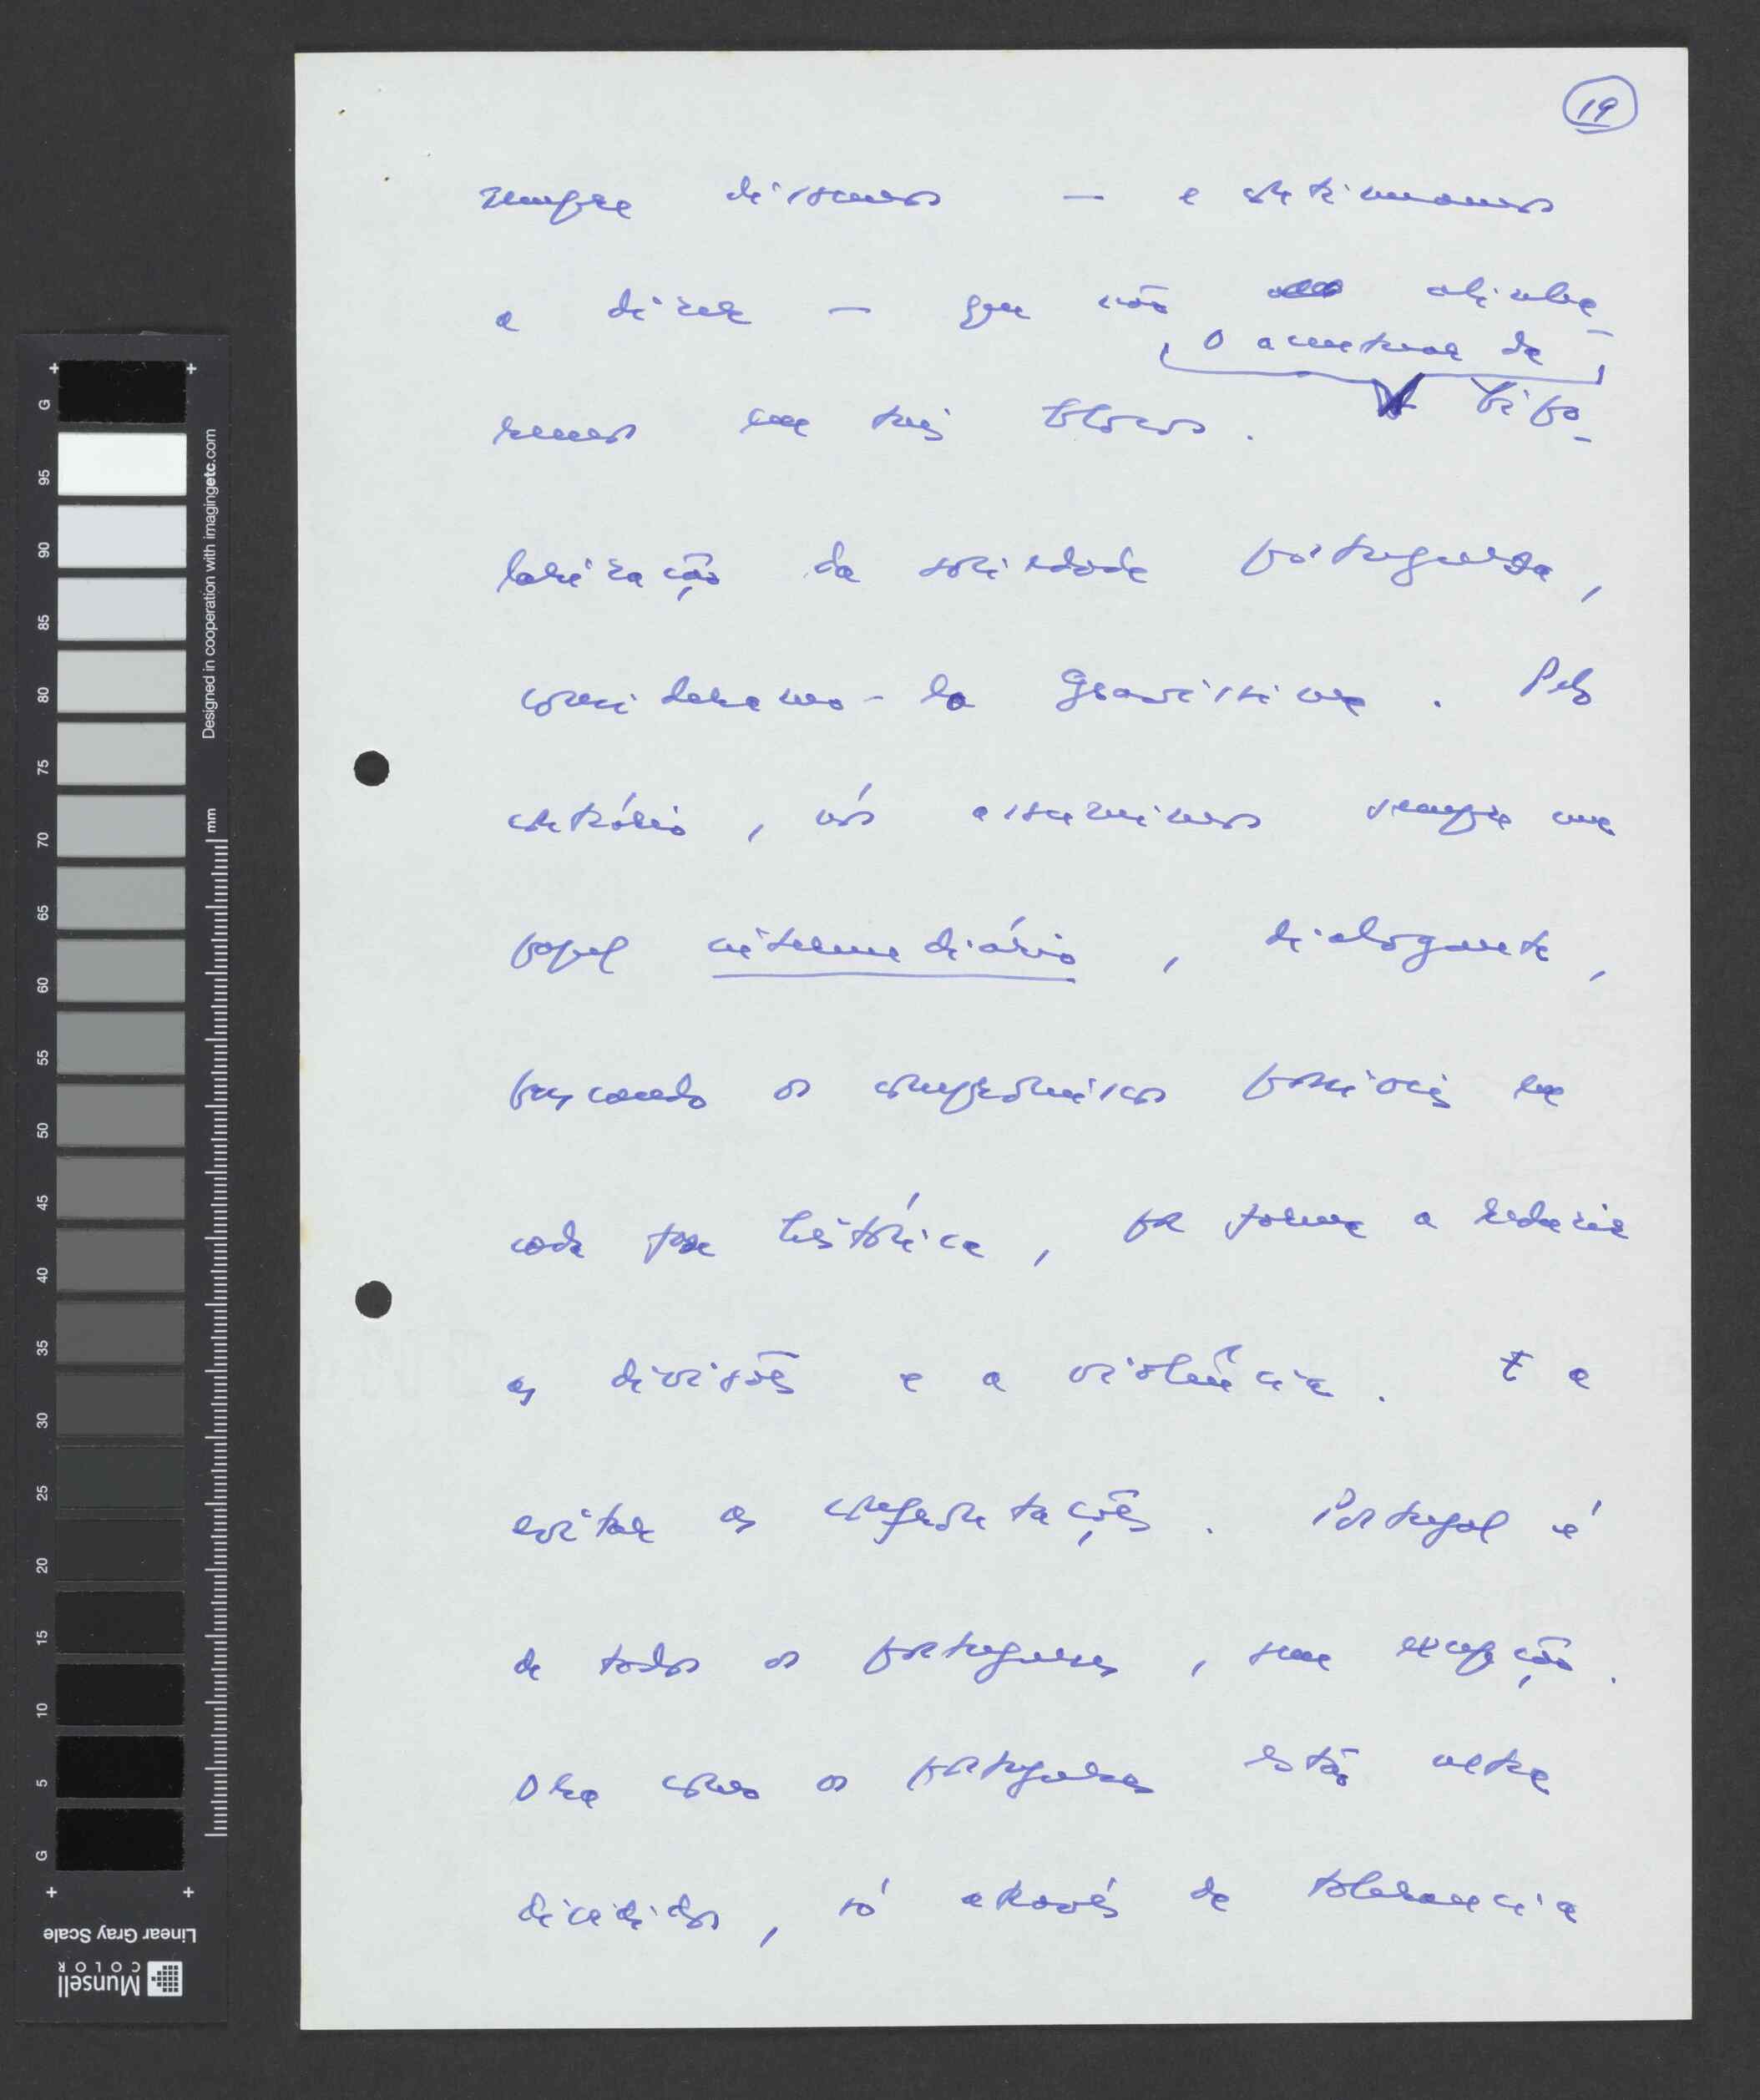 19
sempre dissemos — e continuamos
a dizer — que não alinha-
O acentuar da
remos em tais blocos. bipo-
larização da sociedade portuguesa,
consideramo-la gravíssima. Pelo
contrário, nós assumimos sempre um
papel intermediário, dialogante,
buscando os compromissos possíveis em
cada fase histórica, por forma a reduzir
as divisões e a violência. E a
evitar as confrontações. Portugal é
de todos os portugueses, sem excepção.
Ora como os portugueses estão
divididos, só através da tolerancia
G 95 90 85 80 75 70 65 60 55 50 45 40 35 30 25 20 15 10 5 G
Designed in cooperation with imagingetc.com
mm
Linear Gray Scale
Munsell
COLOR